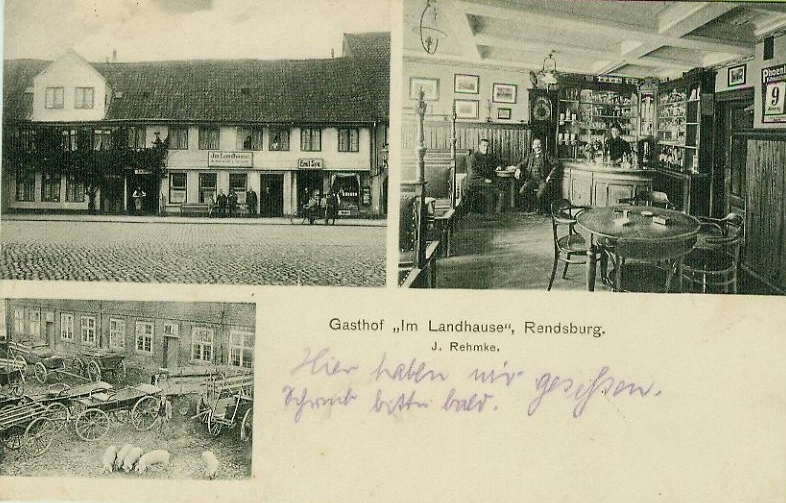 Im Landhause
Emil
Phoenix
9
Gasthof „Im Landhause“, Rendsburg.
J. Rehmke.
Hier haben wir gesessen.
Schreib bitte bald.